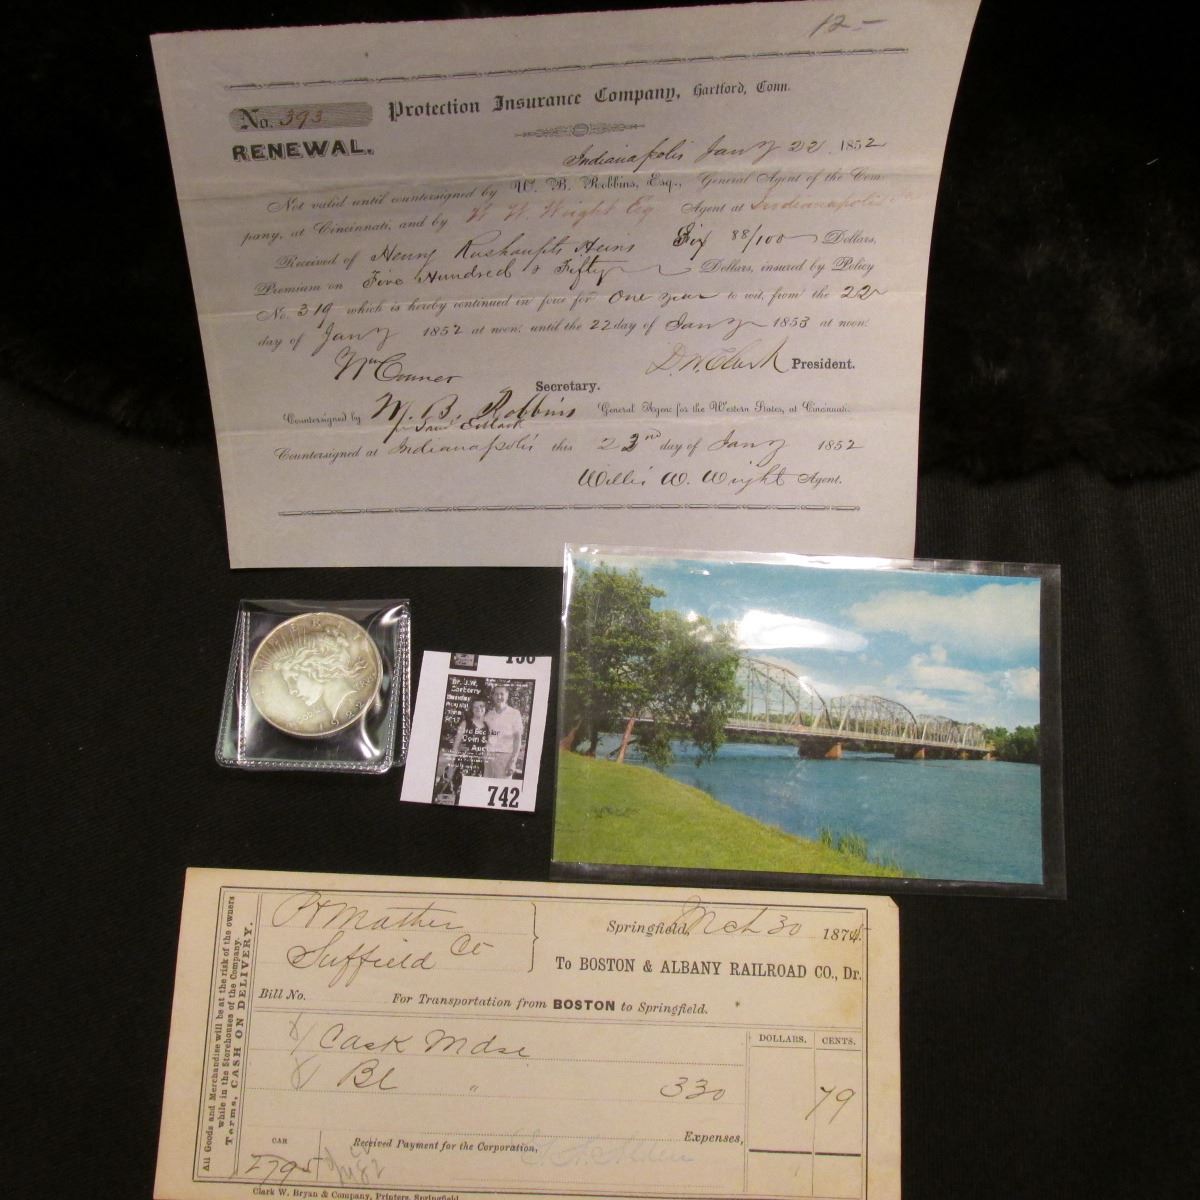 12-
No. 393
Protection Insurance Company, Hartford, Conn.
RENEWAL.
Indianapolis Jany 22. 1852
Not valid until countersigned by W. B. Robbins, Esq., General Agent of the Com-
pany, at Cincinnati, and by W. W. Wright Esq Agent at Indianapolis
Received of Henry Heirs Six 88/100 Dollars,
Premium on Five Hundred & Fifty Dollars, insured by Policy
No. 319 which is hereby continued in force for One year to wit, from the 22
day of Jany 1852 at noon: until the 22 day of Jany 1853 at noon:
Wm Conner D. W. Clark President.
Secretary.
Countersigned by W. B. Robbins General Agent for the Western States, at Cincinnati.
Countersigned at Indianapolis this 23rd day of Jany 1852
Willis W. Wright Agent.
1922
Dr. J.W.
Carberry
742
P H Mather
Suffield Ct
Springfield, Mch 30 1874.
To BOSTON & ALBANY RAILROAD CO., Dr.
Bill No. For Transportation from BOSTON to Springfield.
All Goods and Merchandise will be at the risk of the owners
while in the Storehouses of the Company.
Terms, CASH ON DELIVERY.
DOLLARS. CENTS.
1 Cask Mdse
1 Bl " 330 79
Expenses,
CAR
2795
Received Payment for the Corporation,
Clark W. Bryan & Company, Printers, Springfield.